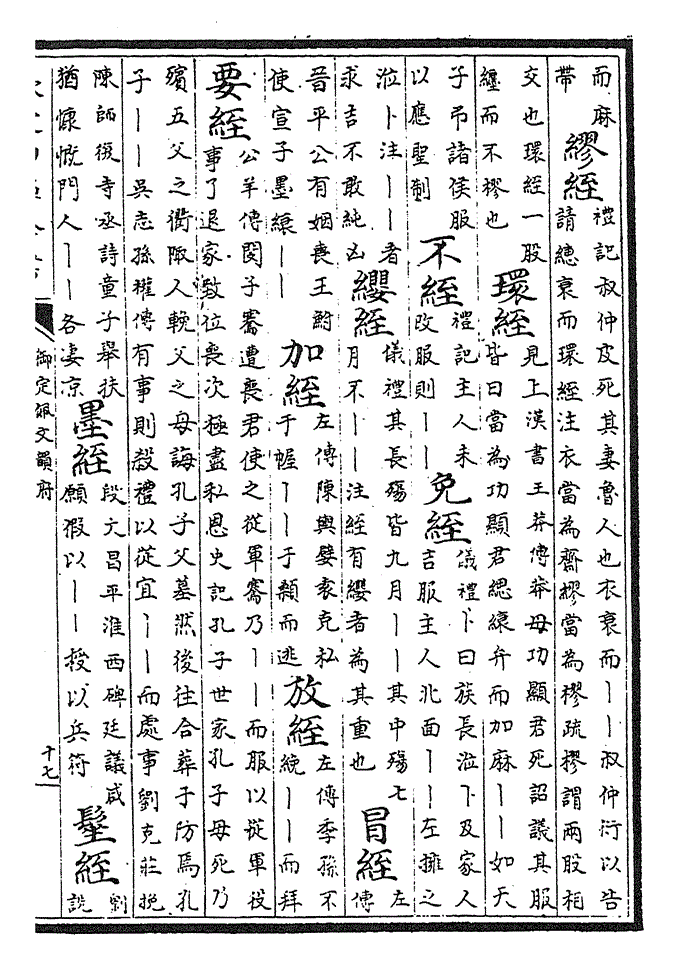 而麻
帶
繆絰
禮記叔仲皮死其妻魯人也衣衰而丨丨叔仲衍以告
請繐衰而環絰注衣當為齊繆當為樛疏樛謂兩股相
交也環絰一股
纏而不樛也
環絰
見上漢書王莽傳莽母功顯君死詔議其服
皆曰當為功顯君緦縗弁而加麻丨丨如天
子弔諸侯服
以應聖制
不絰
禮記主人未
改服則丨丨
免絰
儀禮卜曰族長涖卜及家人
吉服主人北面丨丨左擁之
涖卜注丨丨者
求吉不敢純凶
纓絰
儀禮其長殤皆九月丨丨其中殤七
月不丨丨注絰有纓者為其重也
冒絰
左
傳
晉平公有姻喪王鮒
使宣子墨縗丨丨
加絰
左傳陳輿嬖袁克私
于幄丨丨于顙而逃
放絰
左傳季孫不
絻丨丨而拜
要絰
公羊傳閔子騫遭喪君使之從軍騫乃丨丨而服以從軍役
事了退家致位喪次極盡私恩史記孔子世家孔子母死乃
殯五父之衢陬人輓父之母誨孔子父墓然後往合葬于防焉孔
子丨丨吳志孫權傳有事則殺禮以從宜丨丨而處事劉克莊挽
陳師復寺丞詩童子舉扶
猶慷慨門人丨丨各淒京
墨絰
段文昌平淮西碑廷議咸
願假以丨丨授以兵符
髽絰
劉
詵
御定佩文韻府
十七